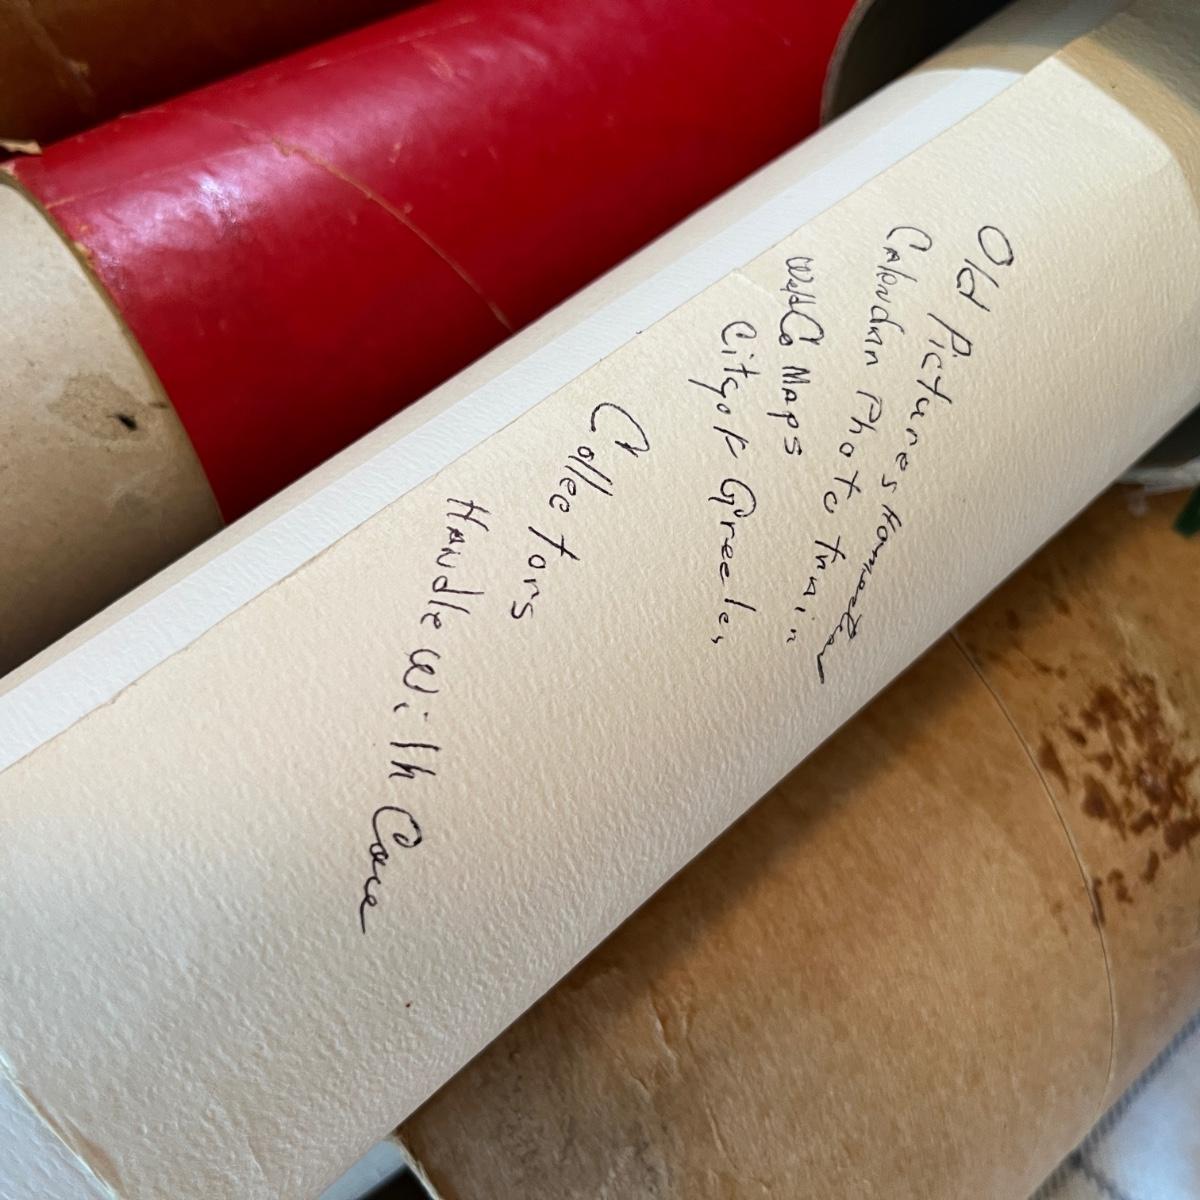 Old Pictures
Calendar Photo train
Weld Co Maps
City of Greeley
Collectors
Handle With Care